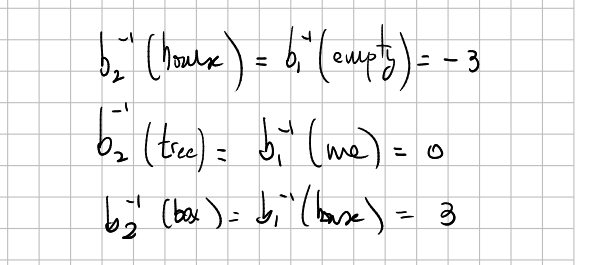 b₂⁻¹ (house) = b₁⁻¹ (empty) = -3
b₂⁻¹ (tree) = b₁⁻¹ (me) = 0
b₂⁻¹ (box) = b₁⁻¹ (house) = 3